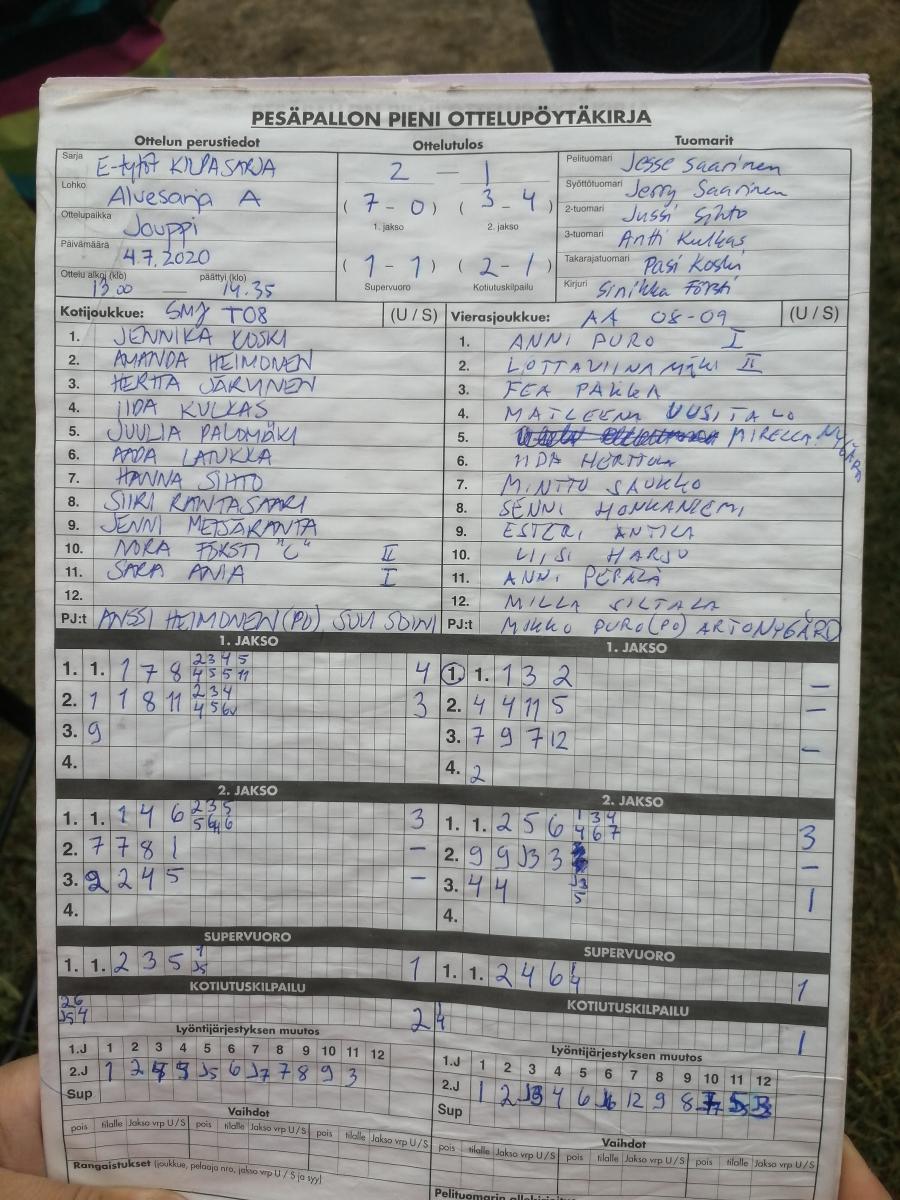 PESÄPALLON PIENI OTTELUPÖYTÄKIRJA
Ottelun perustiedot Ottelutulos Tuomarit
Sarja E-tytöt KILPASARJA
Lohko Aluesarja A
Ottelupaikka Jouppi
Päivämäärä 4.7.2020
Ottelu alkoi (klo) päättyi (klo)
13.00 — 14.35
2 — 1
(7-0) (3-4)
1. jakso 2. jakso
(1-1) (2-1)
Supervuoro Kotiutuskilpailu
Pelituomari Jesse Saarinen
Syöttötuomari Jerry Saarinen
2-tuomari Jussi Sihto
3-tuomari Antti Kulkas
Takarajatuomari Pasi Koski
Kirjuri Sinikka Försti
Kotijoukkue: SMJ T08 (U / S)
1. JENNIKA KOSKI
2. AMANDA HEIMONEN
3. HERTTA JÄRVINEN
4. IIDA KULKAS
5. JUULIA PALOMÄKI
6. AADA LATUKKA
7. HANNA SIHTO
8. SIIRI RANTASAARI
9. JENNI METSÄRANTA
10. NORA FÖRSTI "C" II
11. SARA ANIA I
12.
PJ:t ANSSI HEIMONEN (PJ) SUVI SOINI
Vierasjoukkue: AA 08-09 (U / S)
1. ANNI PURO I
2. LOTTAVIINA MÄKI II
3. FEA PAKKA
4. MATLEENA UUSITALO
5. MIRELLA NYGÅRD
6. IIDA HERTTUA
7. MINTTU SAUKKO
8. SENNI HONKANIEMI
9. ESTERI ANTILA
10. LIISI HARJU
11. ANNI PERÄLÄ
12. MILLA SILTALA
PJ:t MIKKO PURO (PJ) ARTO NYGÅRD
1. JAKSO
1. 1. 1 7 8 2 3 4 5 4
4 5 5 11
2. 1 1 8 11 2 3 4 3
4 5 6
3. 9
4.
1. JAKSO
1. 1. 1 3 2 –
2. 4 4 11 5 –
3. 7 9 7 12 –
4. 2
2. JAKSO
1. 1. 1 4 6 2 3 5 3
2. 7 7 8 1 –
3. 2 2 4 5 –
4.
2. JAKSO
1. 1. 2 5 6 1 3 4 3
4 6 7
2. 9 9 J3 3 –
3. 4 4 J3 1
5
4.
SUPERVUORO
1. 1. 2 3 5 1 1
J5
SUPERVUORO
1. 1. 2 4 6 1 1
4
KOTIUTUSKILPAILU
2 6 2
J5 4
KOTIUTUSKILPAILU
4 1
Lyöntijärjestyksen muutos
1.J 1 2 3 4 5 6 7 8 9 10 11 12
2.J 1 2 J5 6 J7 7 8 9 3
Sup
Lyöntijärjestyksen muutos
1.J 1 2 3 4 5 6 7 8 9 10 11 12
2.J 1 2 J3 4 6 J6 12 9 8
Sup
Vaihdot
pois tilalle Jakso vrp U / S pois tilalle Jakso vrp U / S pois tilalle Jakso vrp U / S
Vaihdot
pois tilalle Jakso vrp U / S pois tilalle Jakso vrp U / S pois tilalle Jakso vrp U / S
Rangaistukset (joukkue, pelaaja nro, jakso vrp U / S ja syy)
Pelituomarin